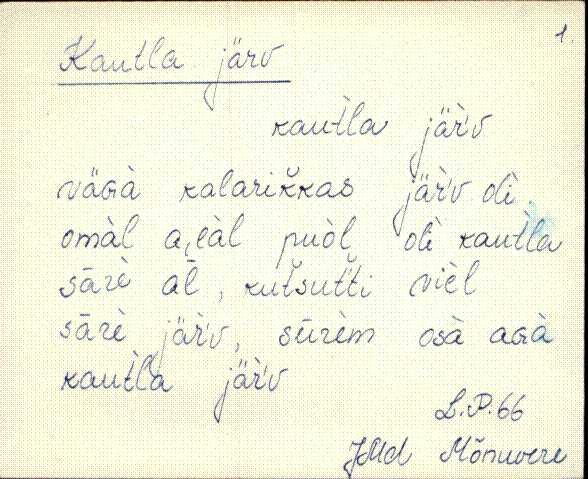 1.
Kautla järv
kautla jär̀v
väɢà kalarikkas jär̀v oli.
omàl aeàl puòl̦ oli kautla
sārè āl, kut̆sut̆ti vièl
sārè jär̀v, sūrèm osà aɢà
kautla jär̀v
L.P. 66
JMd Mõnuvere